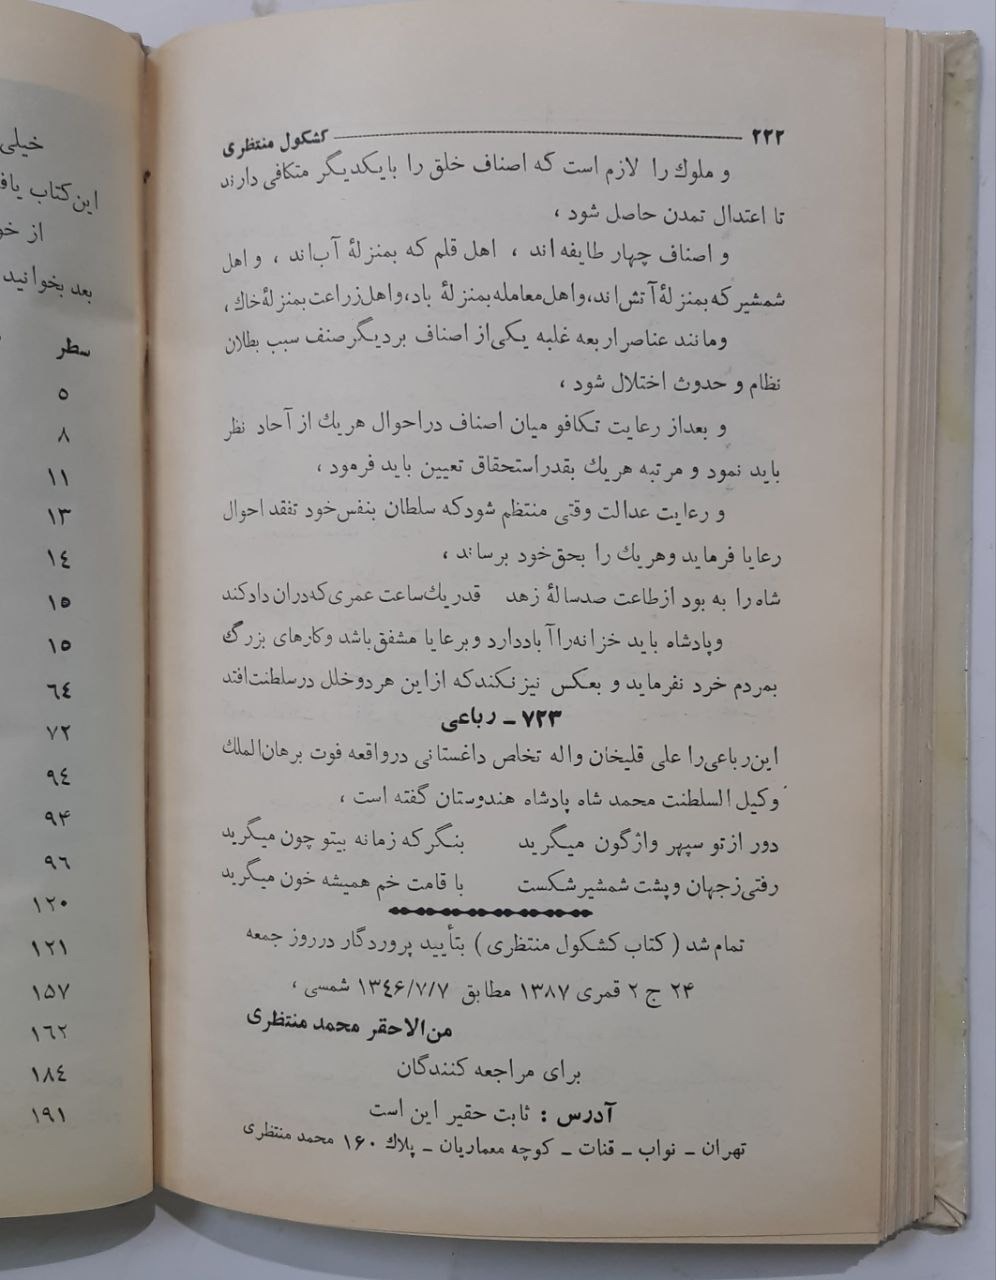 ۲۲۲ کشکول منتظری
و ملوك را لازم است که اصناف خلق را بایکدیگر متکافی دارند
تا اعتدال تمدن حاصل شود ،
و اصناف چهار طایفه اند ، اهل قلم که بمنزلهٔ آب‌اند ، و اهل
شمشیر که بمنزلهٔ آتش‌اند، و اهل معامله بمنزلهٔ باد، و اهل زراعت بمنزلهٔ خاك ،
ومانند عناصر اربعه غلبه یکی‌از اصناف بردیگرصنف سبب بطلان
نظام و حدوث اختلال شود ،
و بعداز رعایت تکافو میان اصناف دراحوال هریك از آحاد نظر
باید نمود و مرتبه هریك بقدر استحقاق تعیین باید فرمود ،
و رعایت عدالت وقتی منتظم شودکه سلطان بنفس‌خود تفقد احوال
رعایا فرماید وهریك را بحق‌خود برساند ،
شاه را به بود ازطاعت صدسالهٔ زهد قدر یك‌ساعت عمری‌که‌دران دادکند
وپادشاه باید خزانه‌راآ باددارد وبرعایا مشفق‌باشد وکارهای بزرگ
بمردم خرد نفرماید و بعکس نیزنکندکه ازاین هردوخلل درسلطنت‌افتد
۷۲۳ ـ رباعی
این‌رباعی‌را علی قلیخان واله تخلص داغستانی درواقعه فوت برهان‌الملك
وکیل السلطنت محمد شاه پادشاه هندوستان گفته است ،
دور ازتو سپهر واژگون میگرید بنگرکه زمانه بیتو چون میگرید
رفتی‌زجهان وپشت شمشیرشکست با قامت خم همیشه خون میگرید
تمام شد ( کتاب کشکول منتظری ) بتأیید پروردگار درروز جمعه
۲۴ ج ۲ قمری ۱۳۸۷ مطابق ۱۳٤۶/۷/۷ شمسی ،
من‌الاحقر محمد منتظری
برای مراجعه کنندگان
آدرس : ثابت حقیر این است
تهران ـ نواب ـ قنات ـ کوچه معماریان ـ پلاك ۱۶۰ محمد منتظری
خیلی
این‌کتاب
از
بعد بخوانید
سطر
۵
۸
۱۱
۱۳
۱٤
۱۵
۱۵
٦٤
۷۲
۹٤
۹۴
۹۶
۱۲۰
۱۲۱
۱۵۷
۱۶۲
۱۸٤
۱۹۱